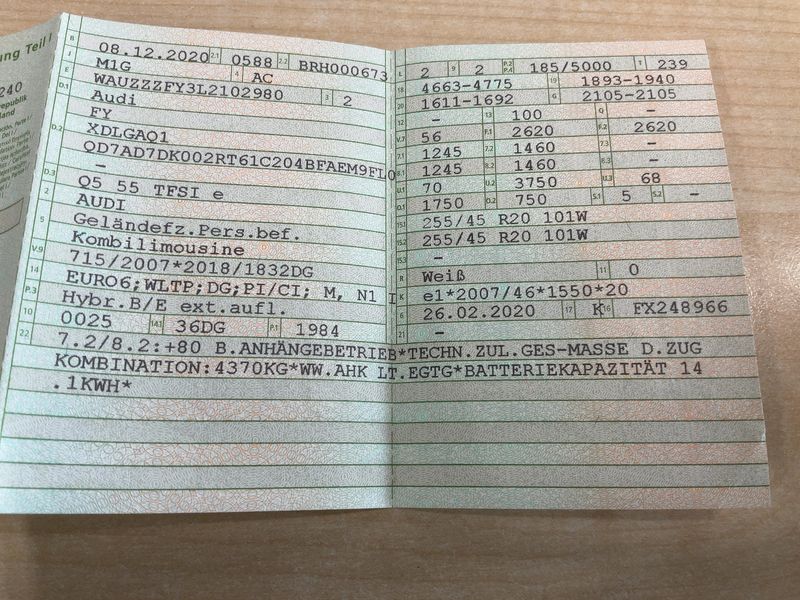 ung Teil I
240
B 08.12.2020 2.1 0588 2.2 BRH000673
J M1G 4 AC
E WAUZZZFY3L2102980 3 2
D.1 Audi
FY
D.2 XDLGAQ1
QD7AD7DK002RT61C204BFAEM9FL0
–
D.3 Q5 55 TFSI e
2 AUDI
5 Geländefz.Pers.bef.
Kombilimousine
V.9 715/2007*2018/1832DG
14 EURO6;WLTP;DG;PI/CI; M, N1 I
P.3 Hybr.B/E ext.aufl.
10 0025 14.1 36DG P.1 1984
L 2 9 2 P.2 P.4 185/5000 T 239
18 4663-4775 19 1893-1940
20 1611-1692 G 2105-2105
12 – 13 100 Q –
V.7 56 F.1 2620 F.2 2620
7.1 1245 7.2 1460 7.3 –
8.1 1245 8.2 1460 8.3 –
U.1 70 U.2 3750 U.3 68
O.1 1750 O.2 750 S.1 5 S.2 –
15.1 255/45 R20 101W
15.2 255/45 R20 101W
15.3 –
R Weiß 11 0
K e1*2007/46*1550*20
6 26.02.2020 17 K 16 FX248966
21 –
22 7.2/8.2:+80 B.ANHÄNGEBETRIEB*TECHN.ZUL.GES-MASSE D.ZUG
KOMBINATION:4370KG*WW.AHK LT.EGTG*BATTERIEKAPAZITÄT 14
.1KWH*